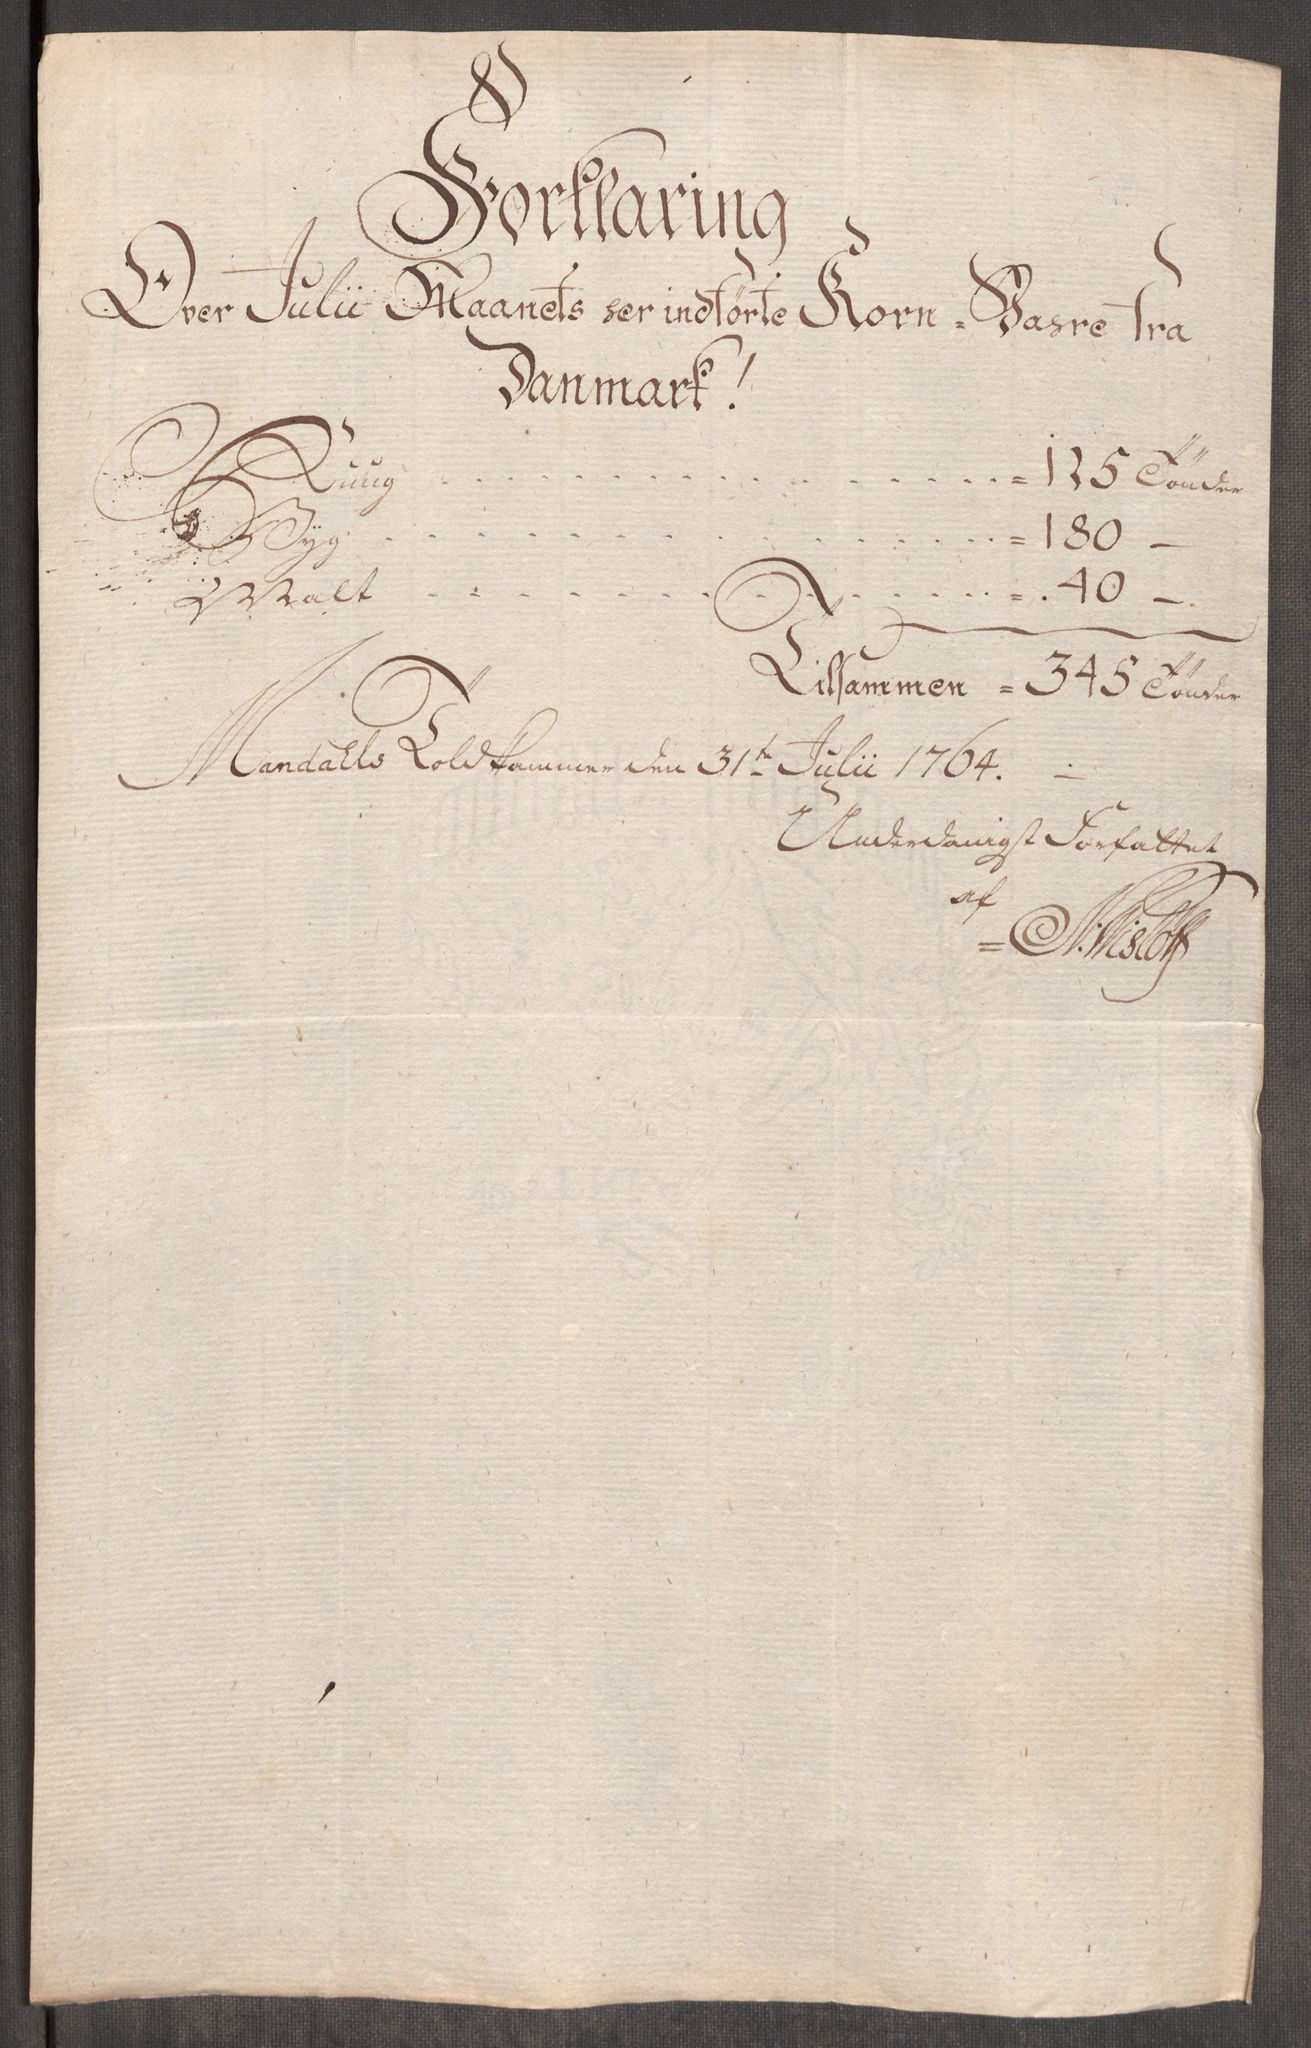 Forklaring
Over Julii Maanets her indførte Korn=Vahre fra
Danmark!
Ruug = 125 Tönder
Byg = 180 —
Malt = 40 —
Tilsammen = 345 Tönder
Mandahls Toldkammer den 31te Julii 1764.
Underdanigst Forfattet
af